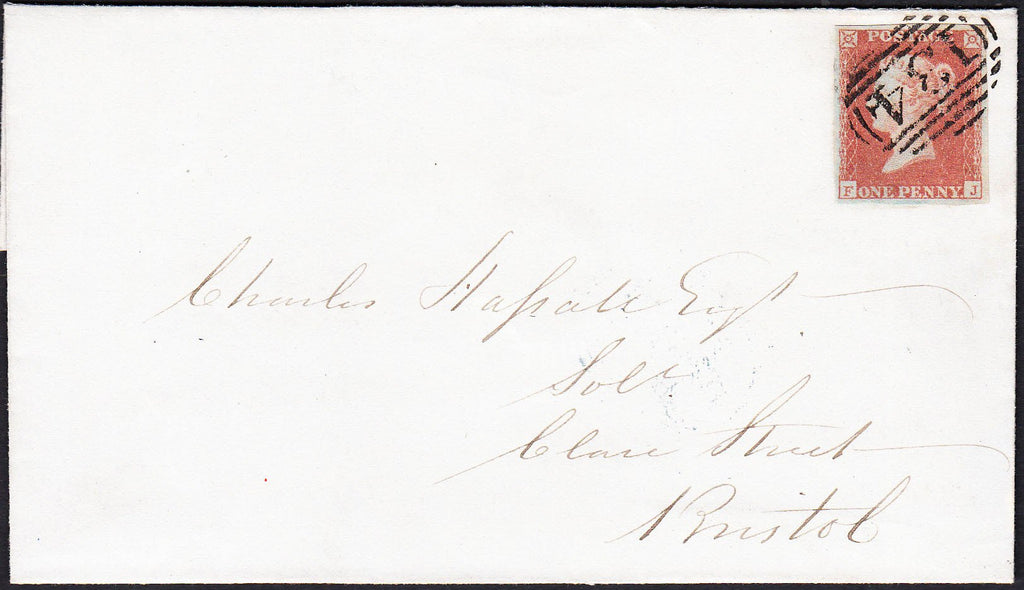 POSTAGE
F ONE PENNY. J
Charles Hassall Esqr
Solr
Clare Street
Bristol